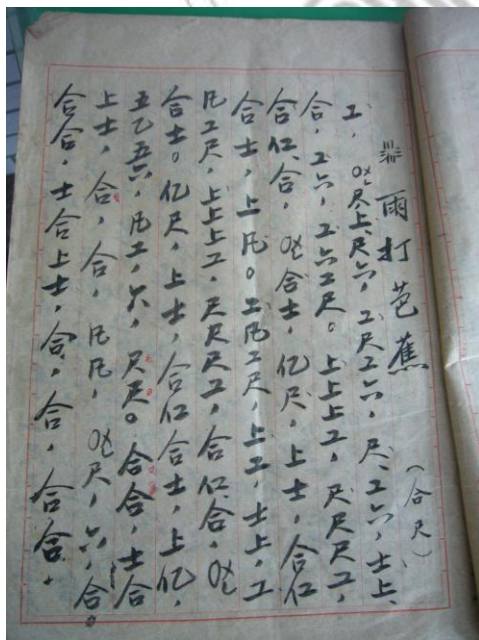 雨打芭蕉 (合尺)
工，尺上、尺六，工尺工六，尺、工六，士上、
合，工六，工六工尺。上上上工，尺尺尺工，
合仜、合，合士，亿尺，上士，合仜
合士，上凡。工凡工尺，上工，士上，工
凡工尺，上上上工，尺尺尺工，合仜、合，
合士。亿尺，上士，合仜合士，上亿，
五乙五六，凡工，六，尺尺。合合，士合
上士，合，合，凡凡，尺，六，合。
合合，士合上士，合，合，合合，